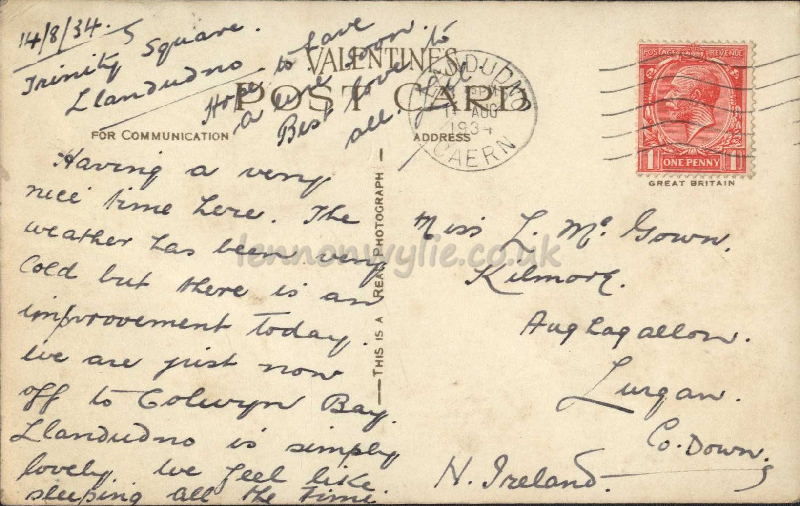 14/8/34.
5
Trinity Square.
Llandudno
Hope to have
a line soon.
Best love to
all.
VALENTINE'S
POST CARD
FOR COMMUNICATION
ADDRESS
LLANDUDNO
PM
14 AUG
1934
CAERN
POSTAGE REVENUE
1 ONE PENNY 1
GREAT BRITAIN
Having a very
nice time here. The
weather has been very
cold but there is an
improvement today.
We are just now
off to Colwyn Bay.
Llandudno is simply
lovely. We feel like
sleeping all the time.
THIS IS A REAL PHOTOGRAPH
Miss L. McGown.
Kilmore.
Aughagallon.
Lurgan.
Co. Down.
N. Ireland.
lennonwylie.co.uk